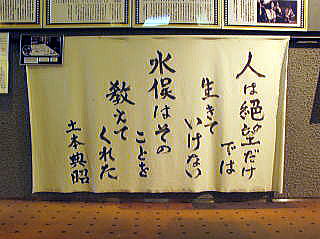 人は絶望だけ
では
生きて
いけない
水俣はその
ことを
教えて
くれた
土本典昭